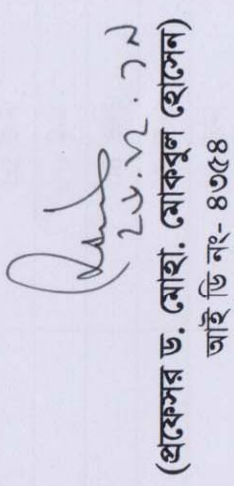 ২৮.১২.১৯
(প্রফেসর ড. মোহা. মোকবুল হোসেন)
আই ডি নং- ৪৩৫৪